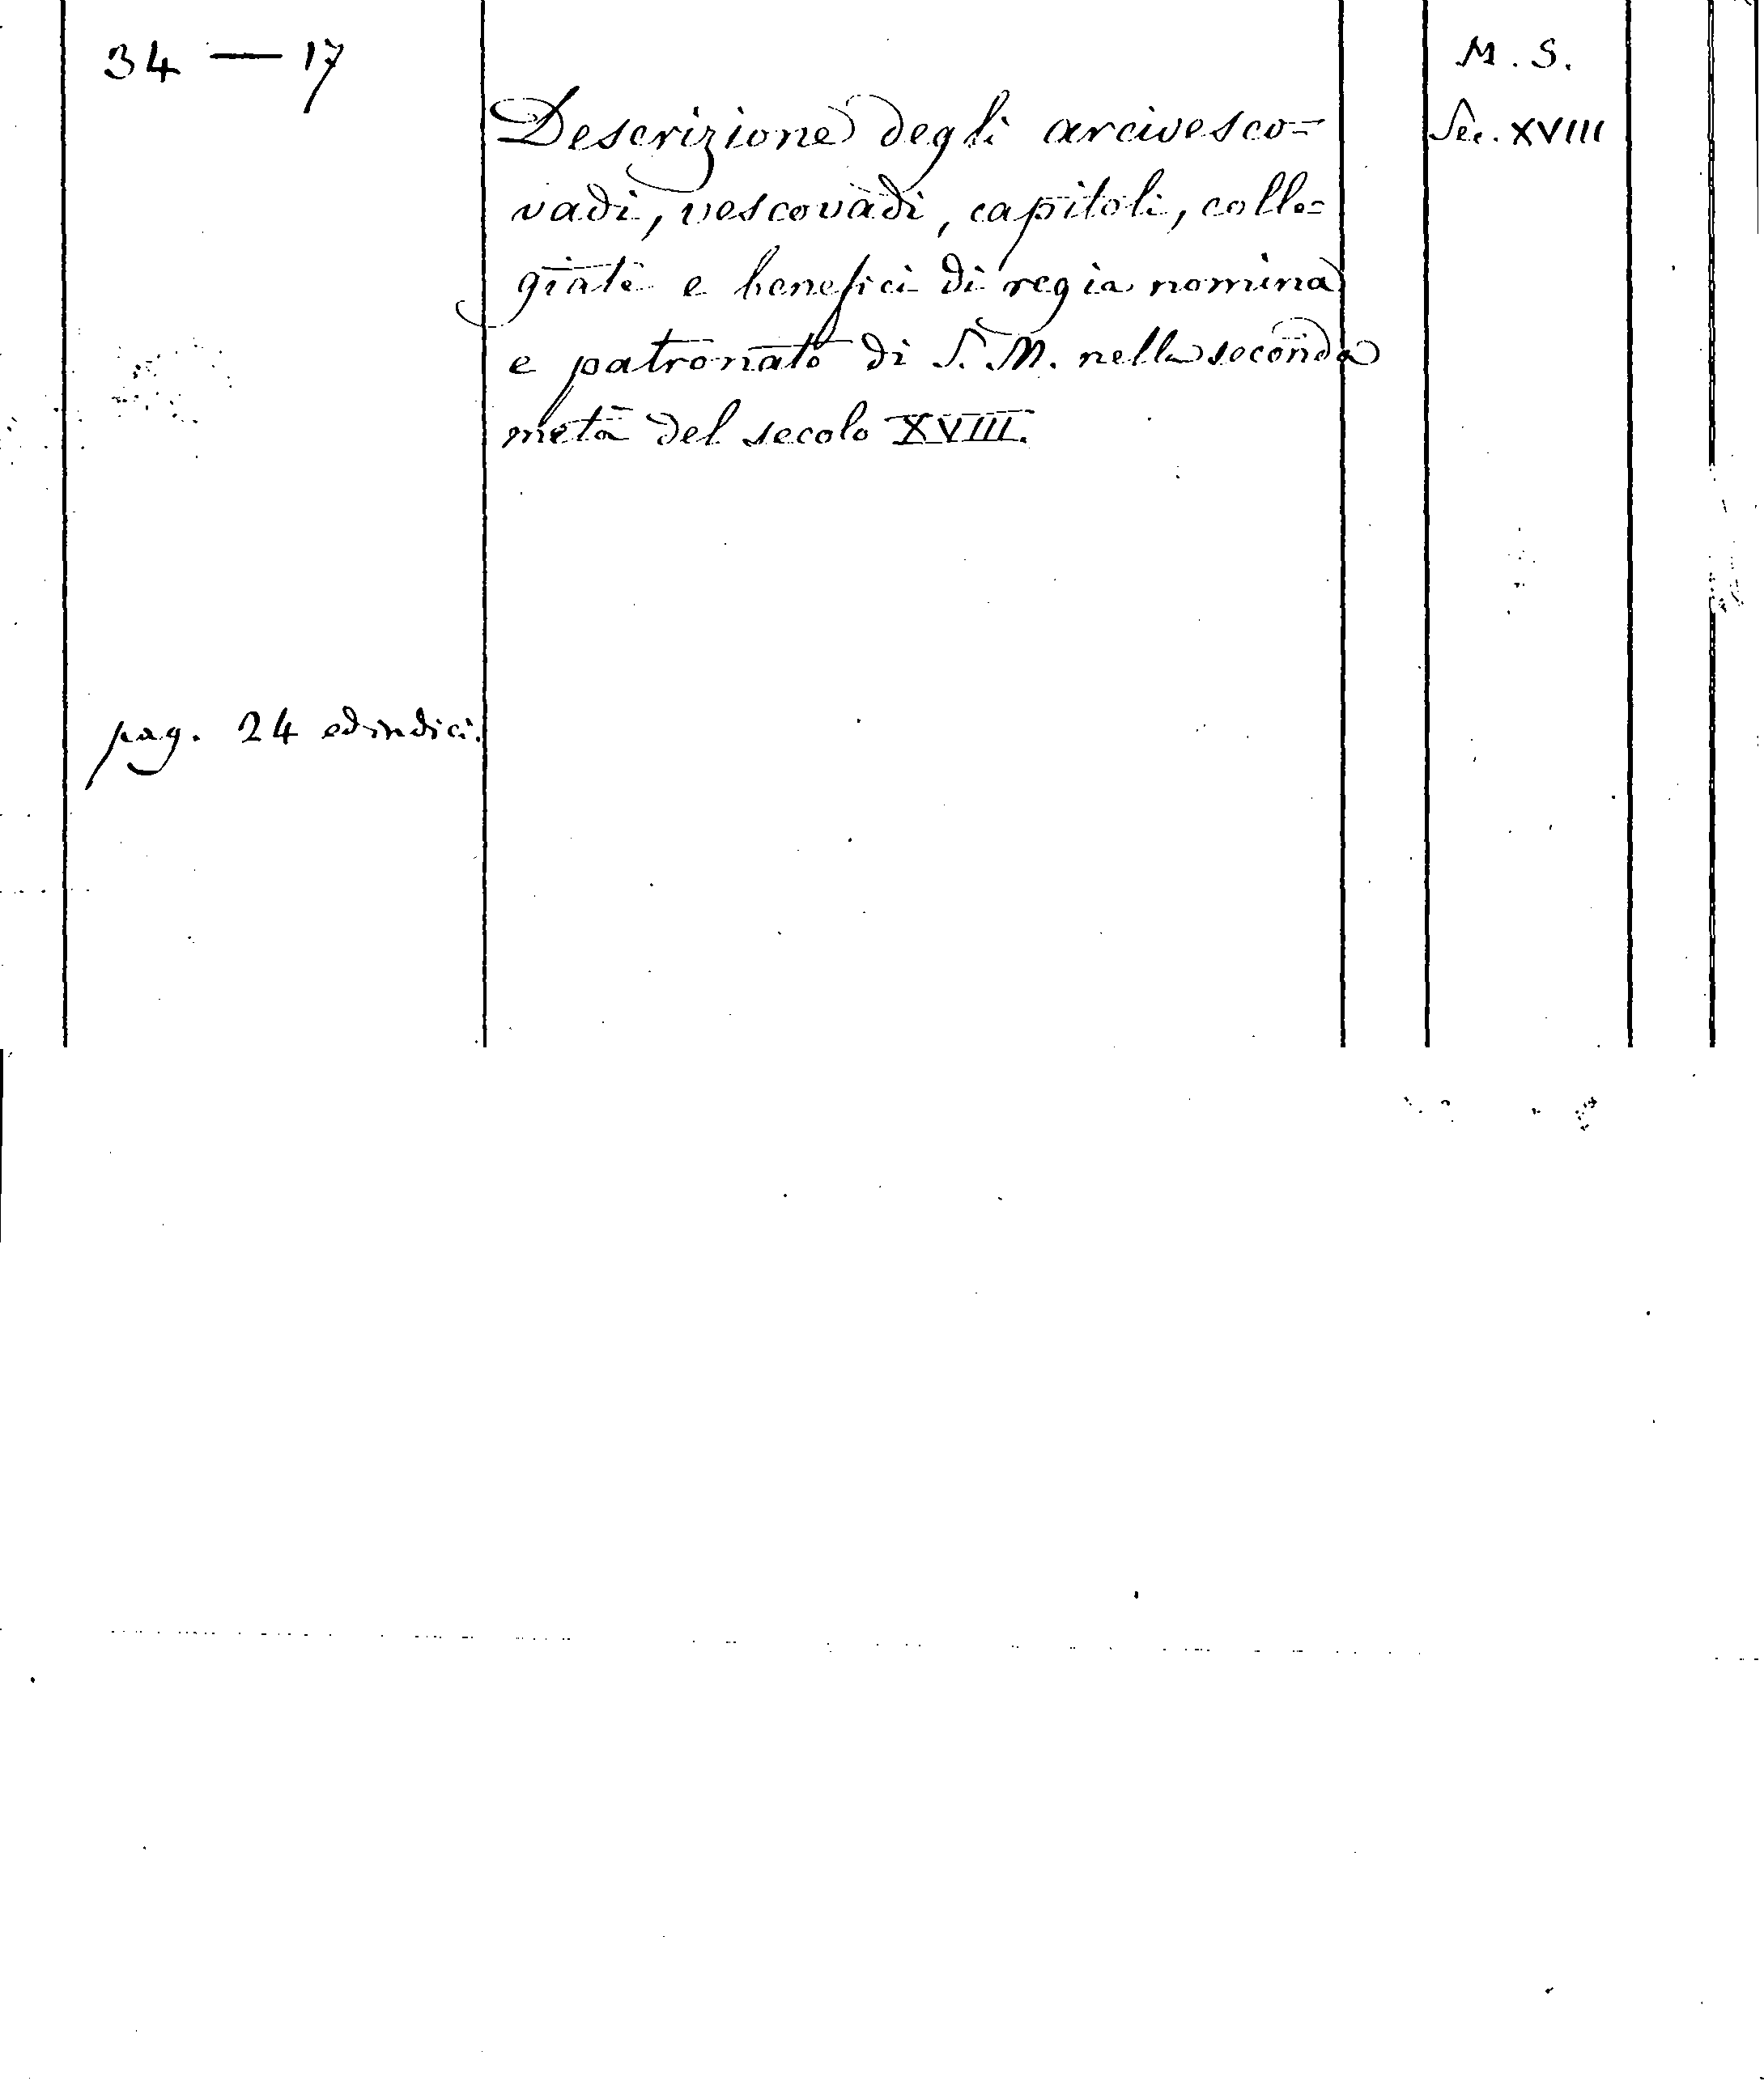 34 — 17
M. S.
Descrizione degli arcivesco=
Sec. XVIII
vadi, vescovadi, capitoli, colle=
giate e benefici di regia nomina
e patronato di S. M. nella seconda
metà del secolo XVIII.
pag. 24 ed indici.